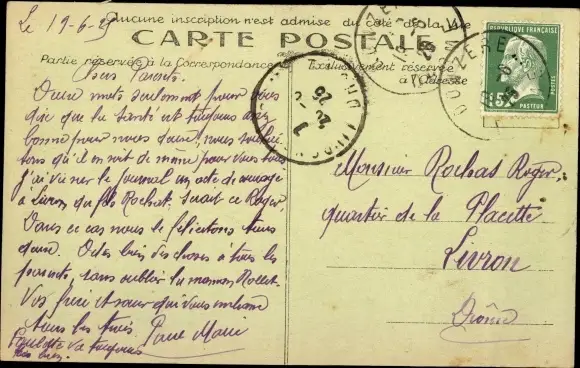 Le 19-6-25
Aucune inscription n'est admise du côté de la Vue
CARTE POSTALE
Partie réservée à la Correspondance
Exclusivement réservée à l'Adresse
Chers Parents.
Deux mots seulement pour vous
dire que la santé est toujours assez
bonne pour nous deux, nous souhai-
tons qu'il en soit de même pour vous tous
j'ai vu sur le journal un acte de mariage
à Livron du fils Rochat. serait ce Roger.
Dans ce cas nous le félicitons tous
deux. bien des choses à tous les
parents, sans oublier la maman
Vos frère et sœur qui vous
tous les trois
va toujours
très bien
Monsieur Rochas Roger.
quartier de la Placette
Livron
Drôme
REPUBLIQUE FRANÇAISE
POSTES
PASTEUR
DONZERE